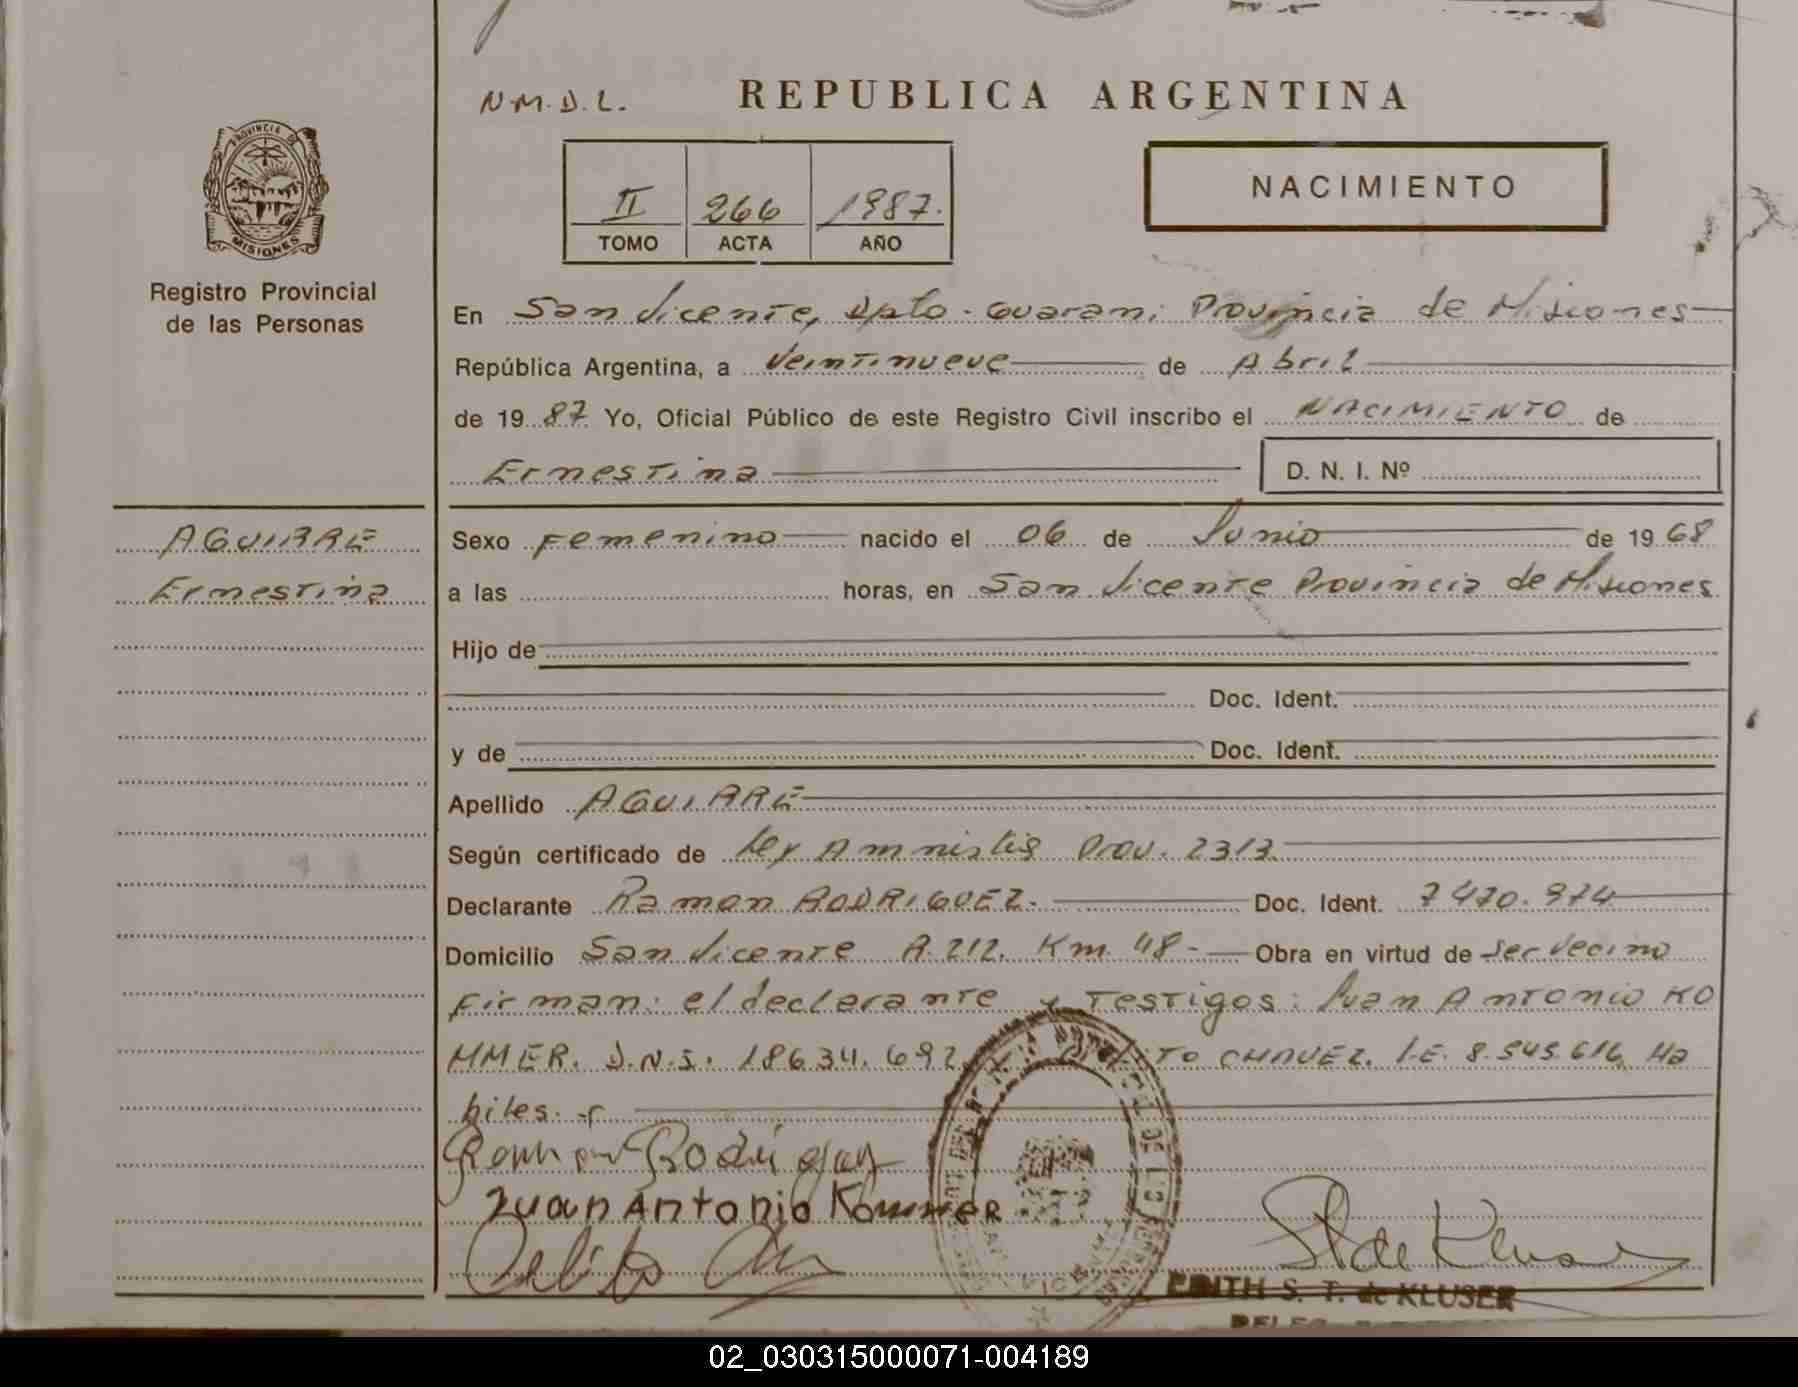 N.M.D.L.
REPUBLICA ARGENTINA
II 266 1987.
TOMO ACTA AÑO
NACIMIENTO
PROVINCIA DE
MISIONES
Registro Provincial
de las Personas
En San Vicente, Dpto. Guarani Provincia de Misiones
República Argentina, a Veintinueve de Abril
de 19 87 Yo, Oficial Público de este Registro Civil inscribo el NACIMIENTO de
Ernestina D. N. I. Nº
AGUIRRE
Ernestina
Sexo Femenino nacido el 06 de Junio de 19 68
a las horas, en San Vicente Provincia de Misiones
Hijo de
Doc. Ident.
y de Doc. Ident.
Apellido AGUIRRE
Según certificado de Ley Amnistia Prov. 2313.
Declarante Ramon RODRIGUEZ. Doc. Ident. 7470.974
Domicilio San Vicente A. 212. Km. 48- Obra en virtud de ser vecino
firman: el declarante y testigos: Juan Antonio KO
MMER. D.N.I. 18634.692 CHAVEZ. L.E. 8.545.616, Ha
biles.
Ramon Rodriguez
Juan Antonio Kommer
Delito
St de Kluser
EDITH S. T. de KLUSER
02_030315000071-004189